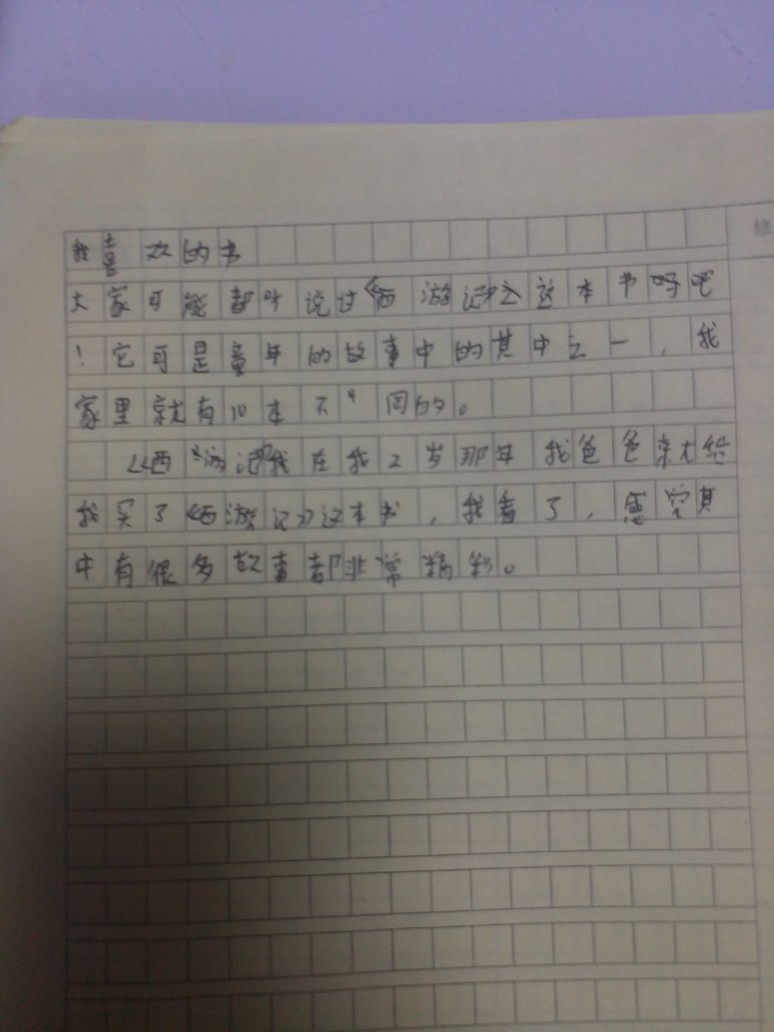 我喜欢的书
大家可能都听说过《西游记》这本书吗吧
！它可是童年的故事中的其中之一，我
家里就有10本不同的。
《西游记》我在我2岁那年我爸爸就给
我买了《西游记》这本书，我看了，感觉其
中有很多故事都非常精彩。